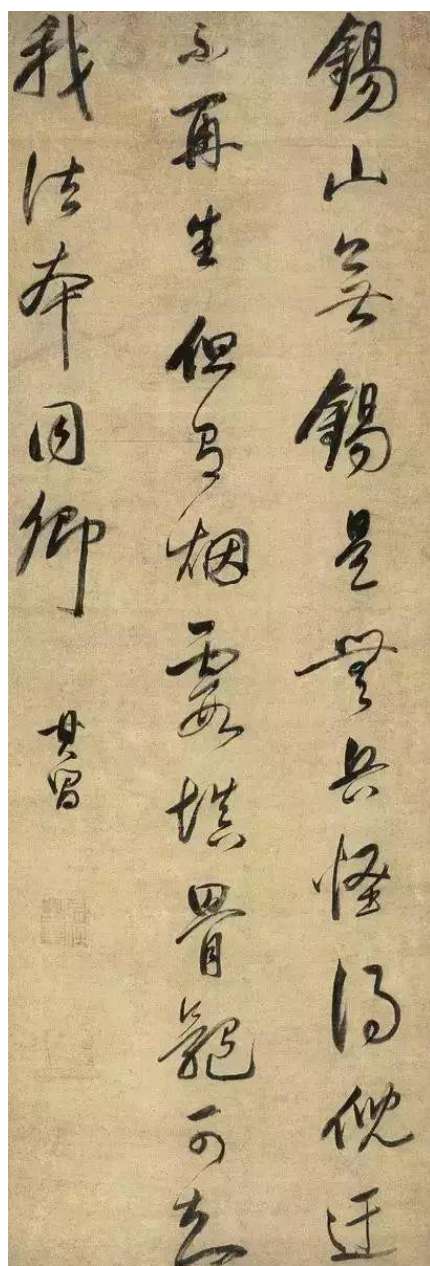 錫山無錫是無兵怪得倪迂
不再生但有烟霞填骨可知
我法本同卿
其昌